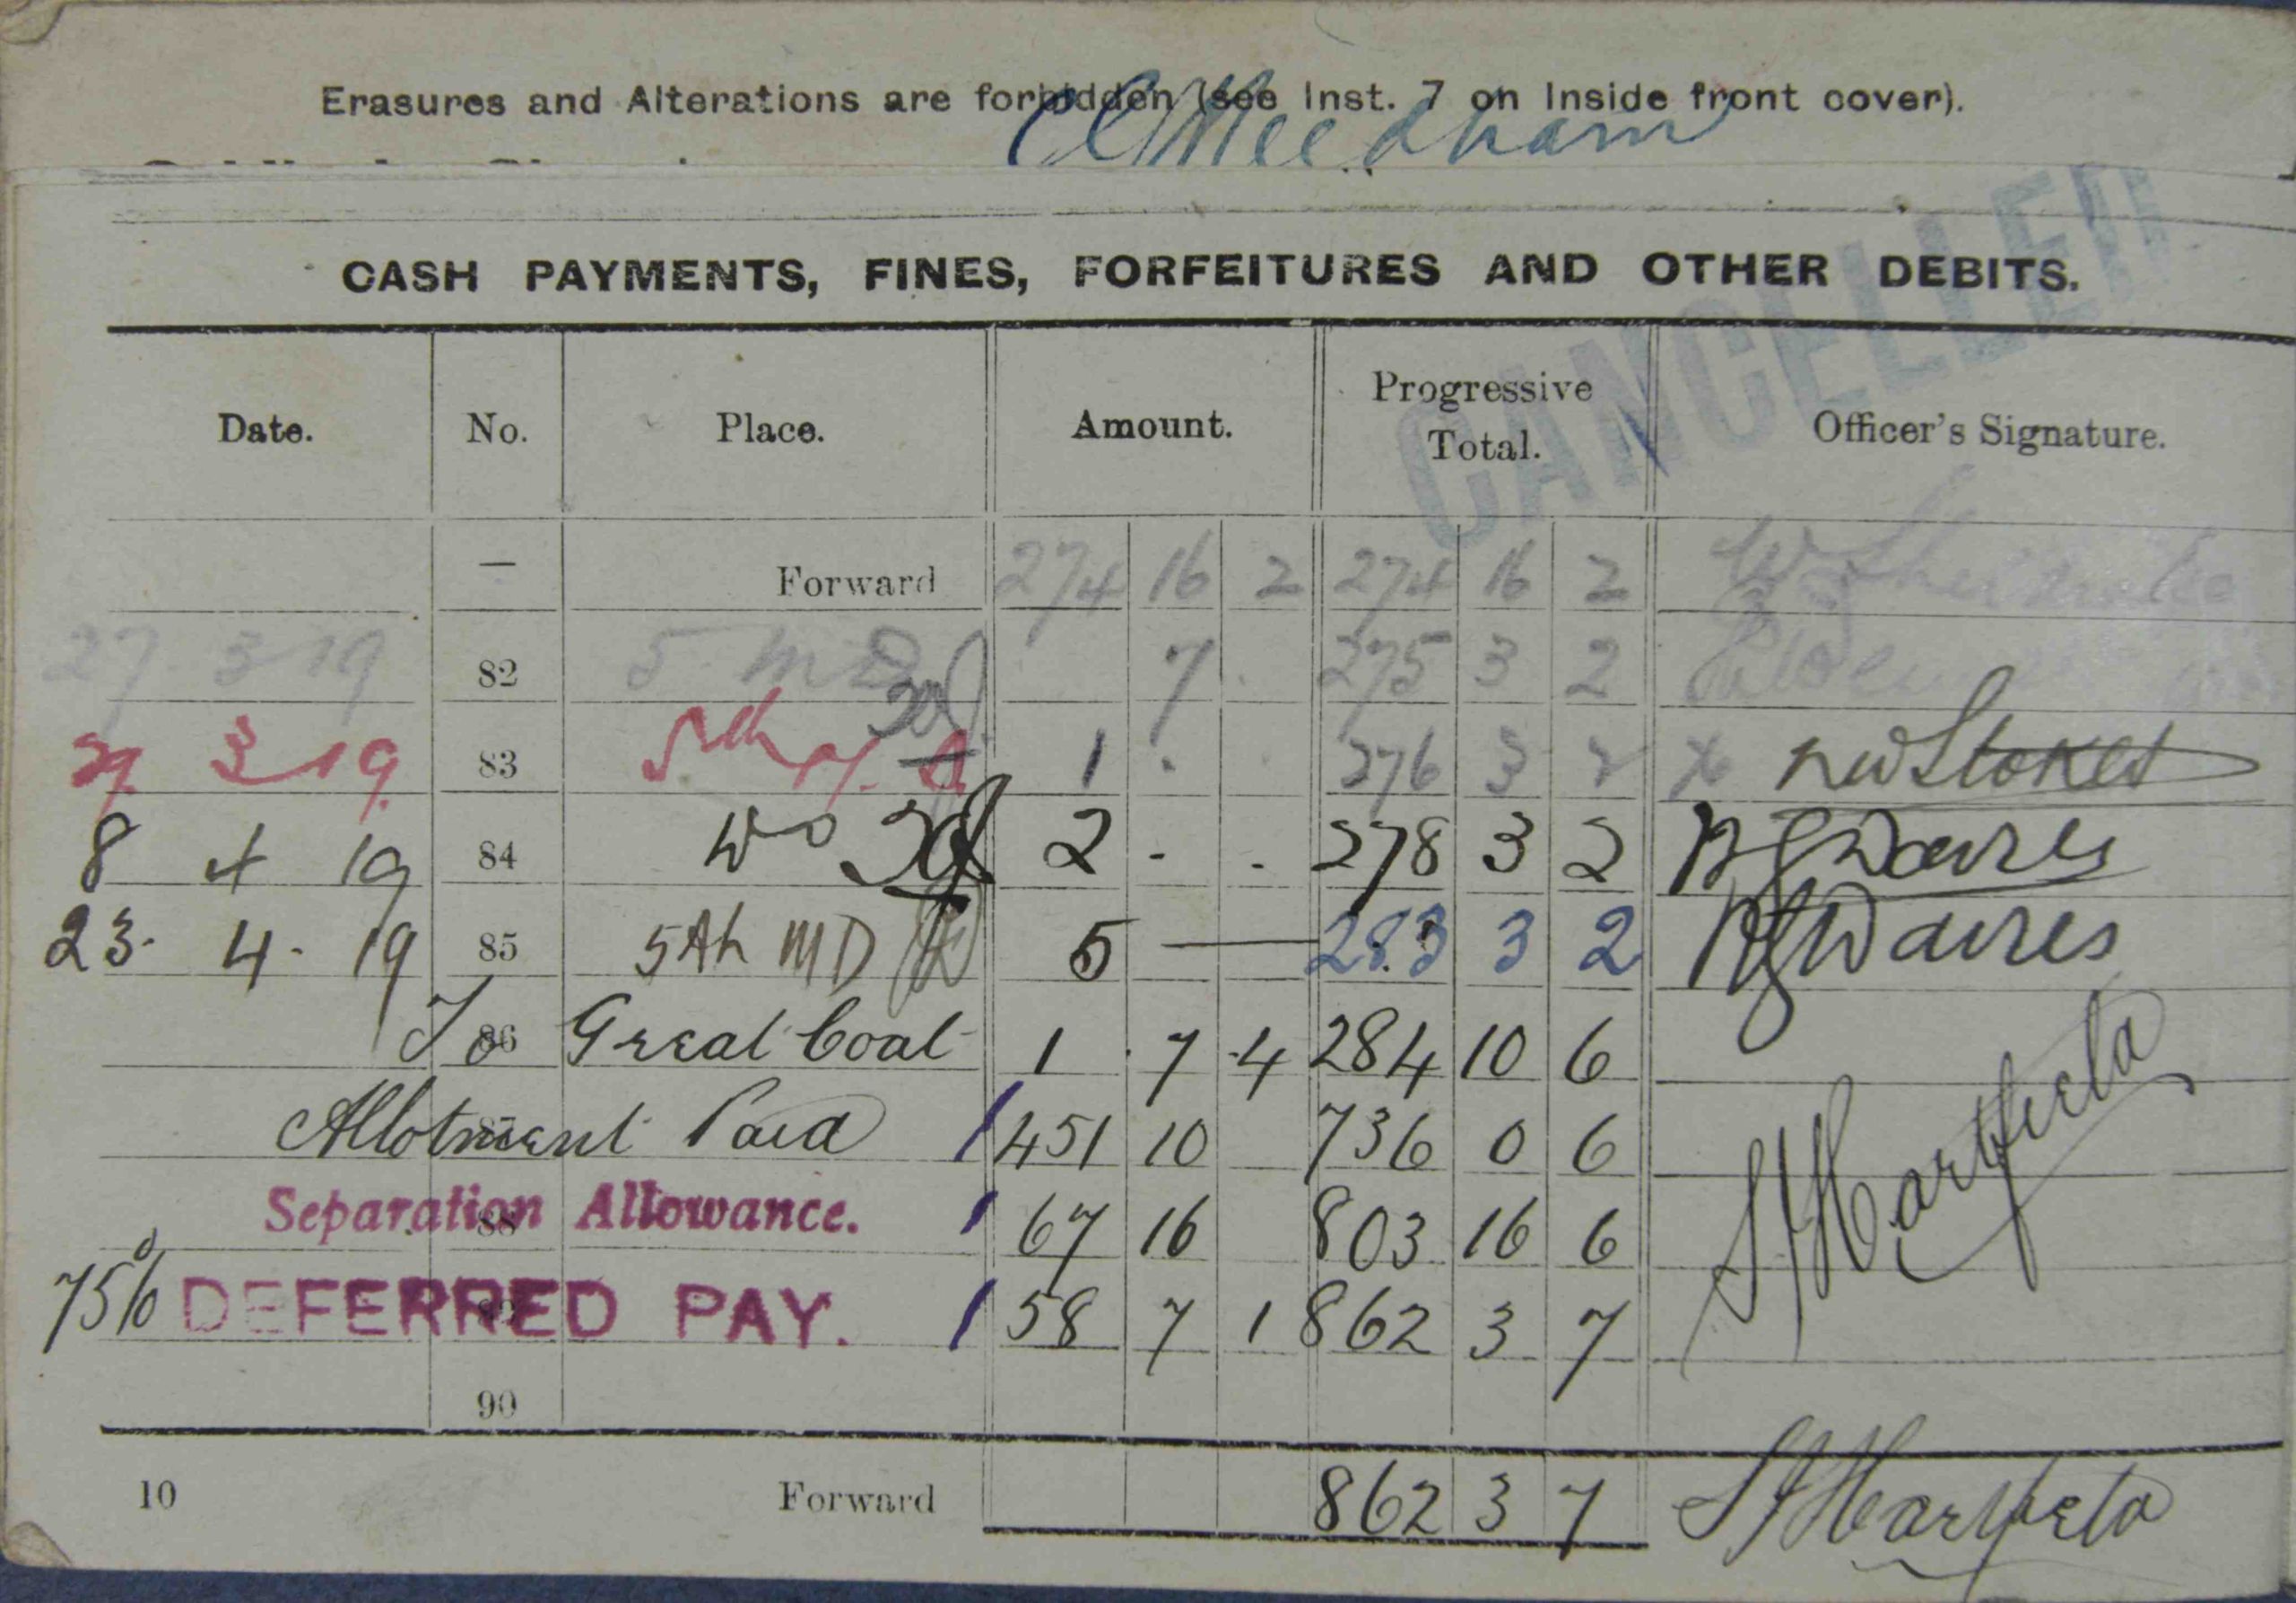 Erasures and Alterations are forbidden (see Inst. 7 on Inside front cover).
Needham
CASH PAYMENTS, FINES, FORFEITURES AND OTHER DEBITS.
CANCELLED
Date. No. Place. Amount. Progressive Total. Officer's Signature.
— Forward 274 16 2 274 16 2
27 3 19 82 5 MD 7 . 275 3 2
27 3 19 83 5th M.D. 1 . . 276 3 2 x Stokes
8 4 19 84 2 - - 278 3 2
23. 4. 19 85 5th MD 5 — 283 3 2
To 86 Great Coat 1 . 7 . 4 284 10 6
Allotment Paid 451 10 736 0 6
Separation 88 Allowance. 67 16 803 16 6
75% DEFERRED PAY. 58 7 1 862 3 7
90
10 Forward 862 3 7